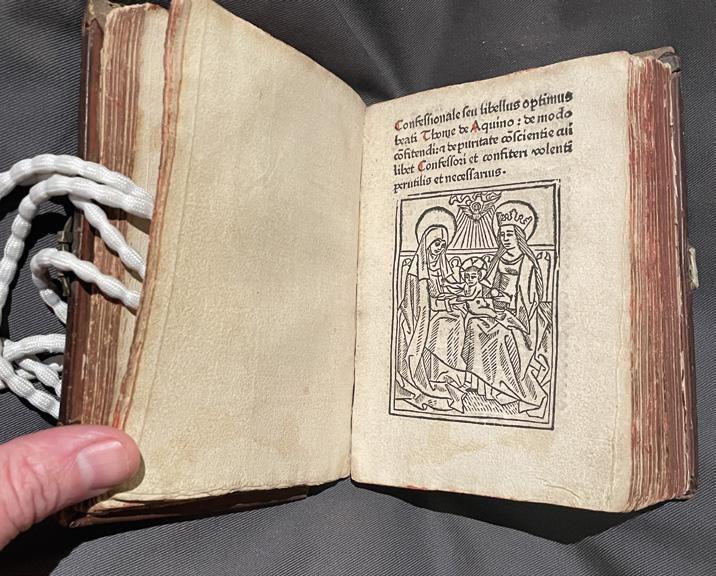 Confessionale seu libellus optimus
beati Thome de Aquino: de modo
cõfitendi: ⁊ de puritate cõscientie cui
libet Confessori et confiteri volenti
perutilis et necessarius.